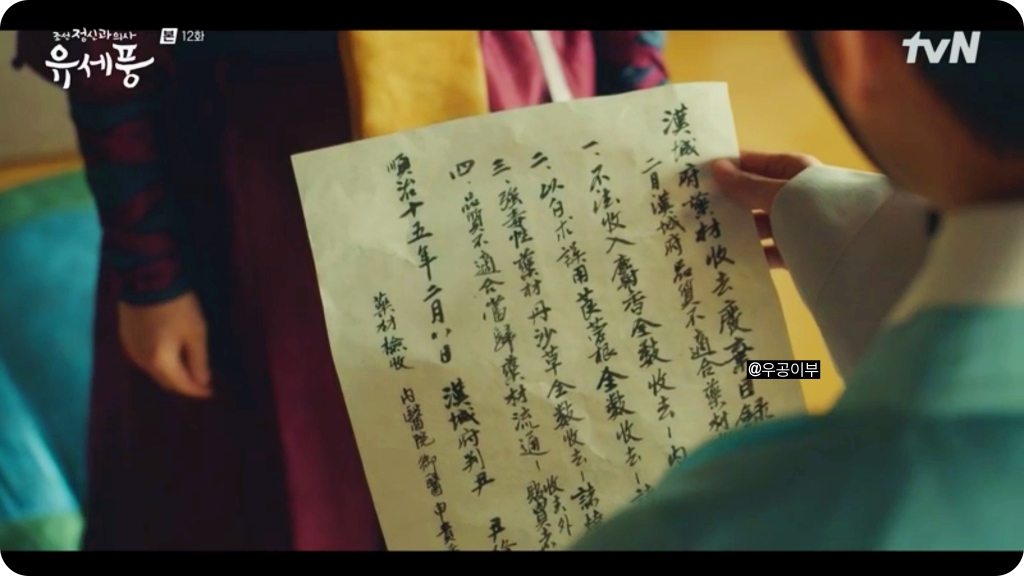 조선 정신과 의사
유세풍
본 12화
tvN
漢城府藥材收去廢棄目錄
二月漢城府品質不適合藥材
一. 不法收入麝香全數收去-內
二. 以白朮誤用蒼朮根全數收去-
三. 強毒性藥材丹沙草全數收去-
四. 品質不適合當歸藥材流通-收去外
順治十五年二月八日 漢城府判尹 尹
藥材檢收 內醫院 御醫 申貴
@우공이부